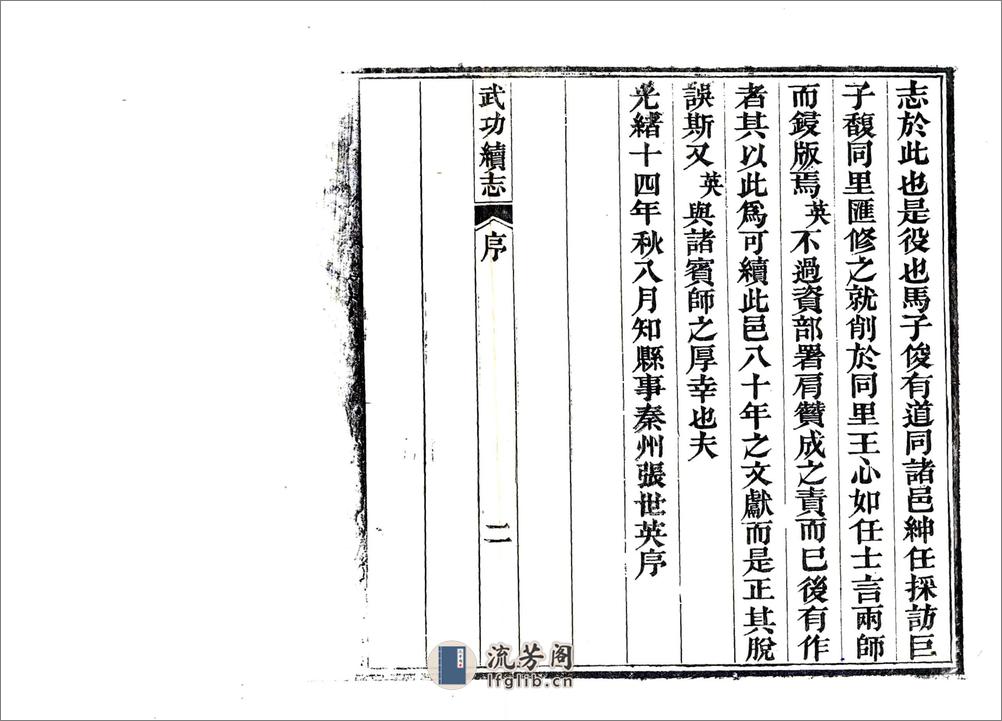 志於此也是役也馬子俊有道同諸邑紳任採訪巨
子馥同里匯修之就削於同里王心如任士言兩師
而鋟版焉英不過資部署肩贊成之責而已後有作
者其以此爲可續此邑八十年之文獻而是正其脫
誤斯又英與諸賓師之厚幸也夫
光緒十四年秋八月知縣事秦州張世英序
武功續志 序 二
流芳阁
lfglib.cn